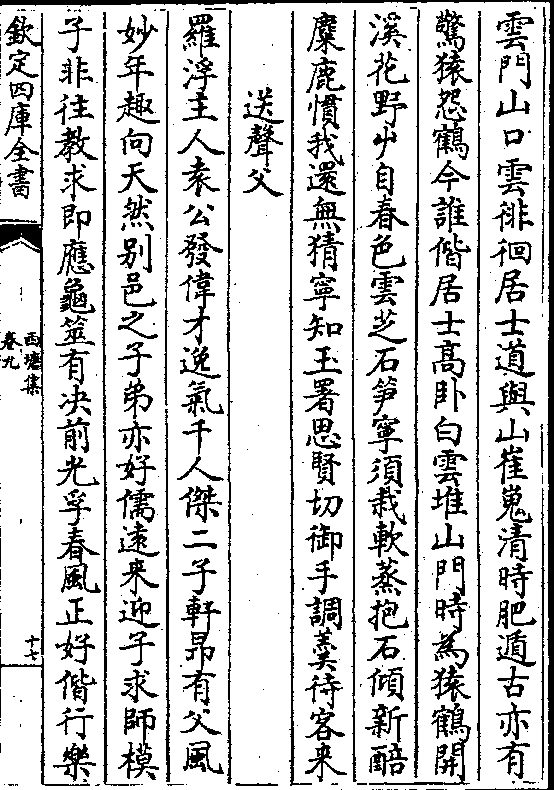 雲門山口雲徘徊居士道與山崔嵬清時肥遁古亦有
驚猿怨鶴今誰偕居士高卧白雲堆山門時為猿鶴開
溪花野艸自春色雲芝石笋寧須栽軟蒸抱石傾新醅
麋鹿慣我還無猜寧知玉署思賢切御手調羹待客来
送聲父
羅浮主人袁公發偉才逸氣千人傑二子軒昂有父風
妙年趣向天然别邑之子弟亦好儒逺来迎子求師模
子非往教求即應龜筮有决前光孚春風正好偕行樂
欽定四庫全書
西塘集
卷九
十七